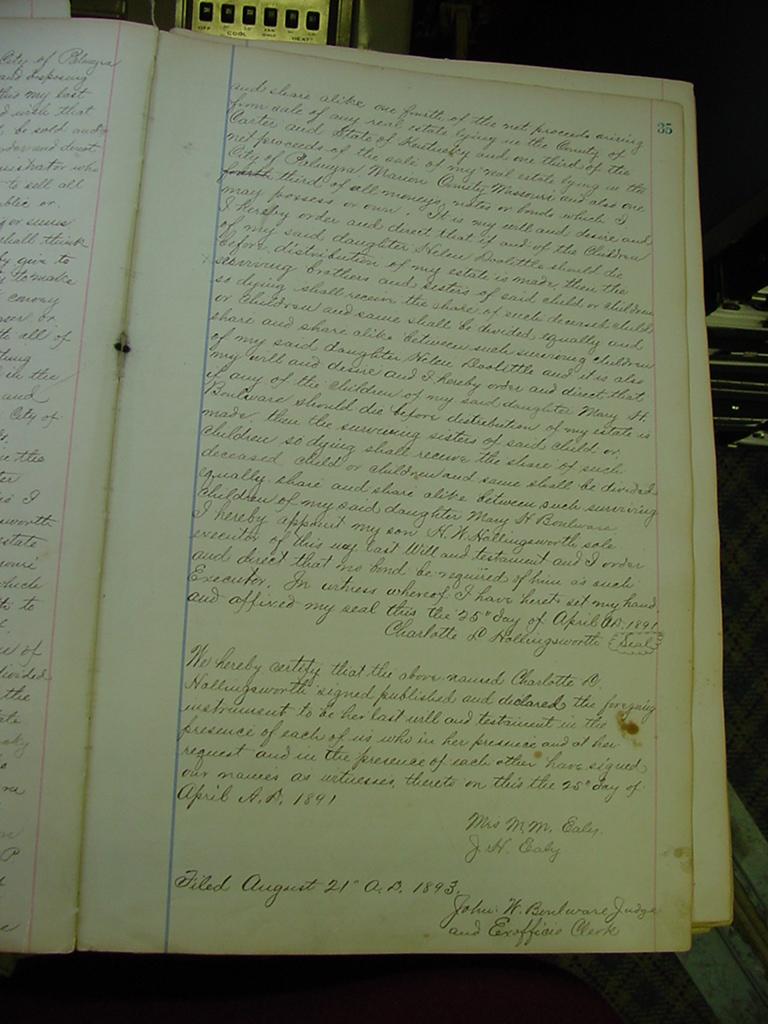 35
and share alike one fourth of the net proceeds arising
from sale of any real estate lying in the County of
Carter and State of Kentucky and one third of the
net proceeds of the sale of my real estate lying in the
City of Palmyra, Marion County Missouri and also one
fourth third of all moneys, notes or bonds which I
may possess or own. It is my will and desire and
I hereby order and direct that if and of the Children
of my said daughter Helen Doolittle should die
before distribution of my estate is made, then the
surviving brothers and sisters of said child or children
so dying shall receive the share of such deceased child
or children and same shall be divided equally and
share and share alike between such surviving children
of my said daughter Helen Doolittle and it is also
my will and desire and I hereby order and direct that
if any of the children of my said daughter Mary H.
Boulware should die before distribution of my estate is
made, then the surviving sisters of said child or
children so dying shall receive the share of such
deceased child or children and same shall be divided
equally share and share alike between such surviving
children of my said daughter Mary H Boulware
I hereby appoint my son H. W. Hollingsworth sole
executor of this my last Will and testament and I order
and direct that no bond be required of him as such
Executor. In witness whereof I have hereto set my hand
and affixed my seal this the 25" day of April A.D. 1891
Charlotte D Hollingsworth Seal
We hereby certify that the above named Charlotte D.
Hollingsworth signed published and declared the foregoing
instrument to be her last will and testament in the
presence of each of us who in her presence and at her
request and in the presence of each other have signed
our names as witnesses thereto on this the 25" day of
April A.D. 1891
Mrs M. M. Ealy
J. H. Ealy
Filed August 21" A.D. 1893.
John W. Boulware Judge
and Exofficio Clerk
City of Palmyra
and disposing
this my last
wish that
be sold and
and direct
who
to sell all
or
shall think
give to
to make
convey
or
to all of
in the
and
City of
the
I
estate
which
to
of
divided
the